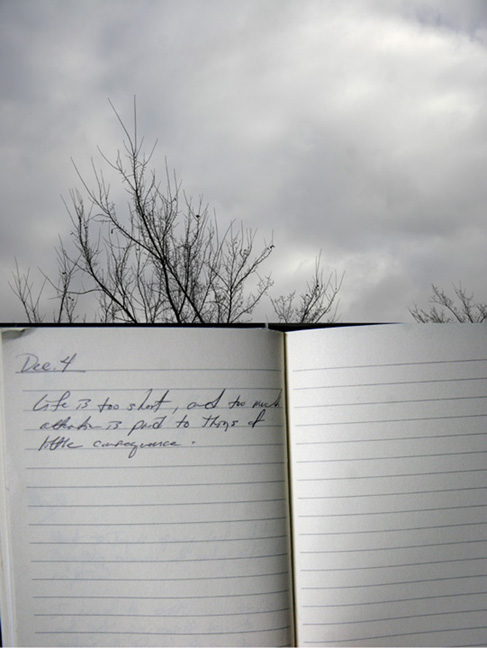 Dec. 4
Life is too short, and too much
attention is paid to things of
little consequence.